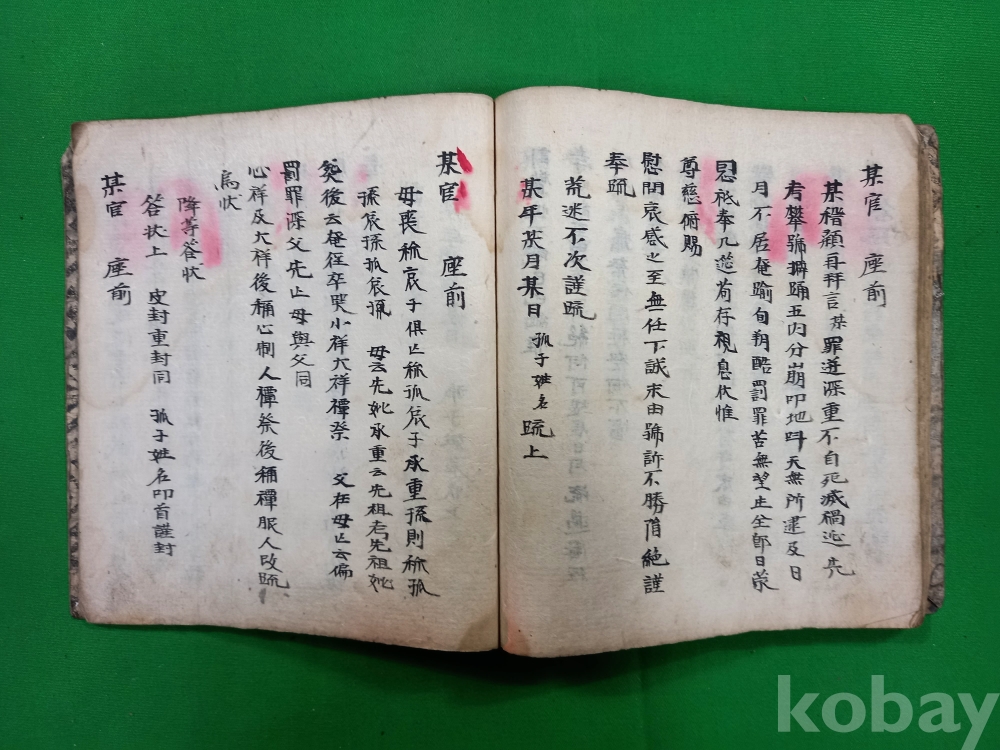 某官 座前
某稽顙再拜言 某 罪逆深重不自死滅禍延先
考攀號擗踊五內分崩叩地呌天無所逮及日
月不居奄踰旬朔酷罰罪苦無望生全卽日蒙
恩祗奉几筵苟存視息伏惟
尊慈俯賜
慰問哀感之至無任下誠末由號訴不勝隕絶謹
奉疏
荒迷不次謹疏
某年某月某日 孤子姓名 疏上
某官 座前
母喪称哀子俱亡称孤哀子承重孫則称孤
孫哀孫孤哀孫 母云先妣承重云先祖考先祖妣
葬後云奄経卒哭小祥大祥禫祭 父在母亡云偏
罰罪深父先亡母與父同
心祥及大祥後稱心制人禫祭後稱禫服人改疏
爲狀
降等答狀
答狀上 皮封重封同 孤子姓名叩首謹封
某官 座前
kobay